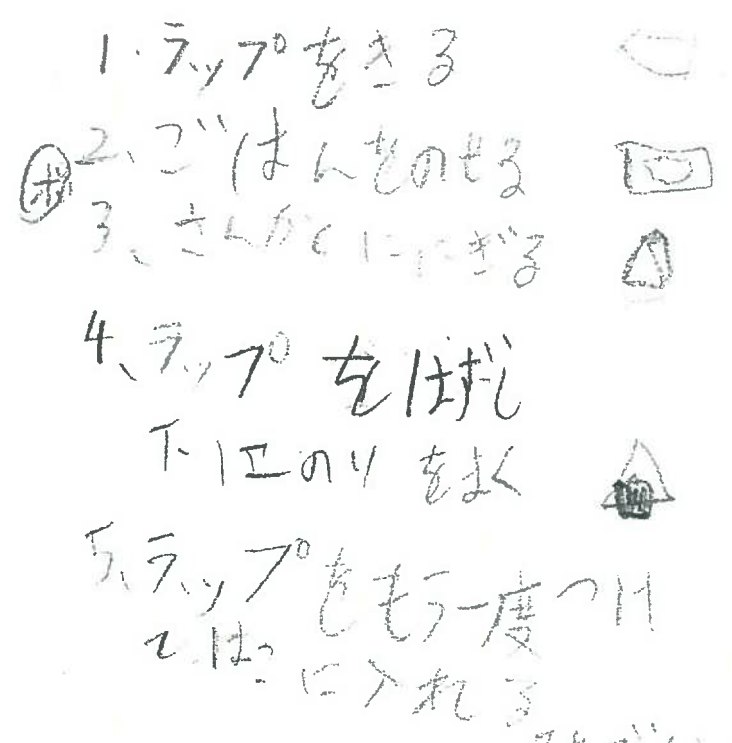 1.ラップをきる
2、ごはんをのせる
ポ
3、さんかくににぎる
4、ラップをはずし
下にのりをまく
5、ラップをもう一度つけ
てはこに入れる